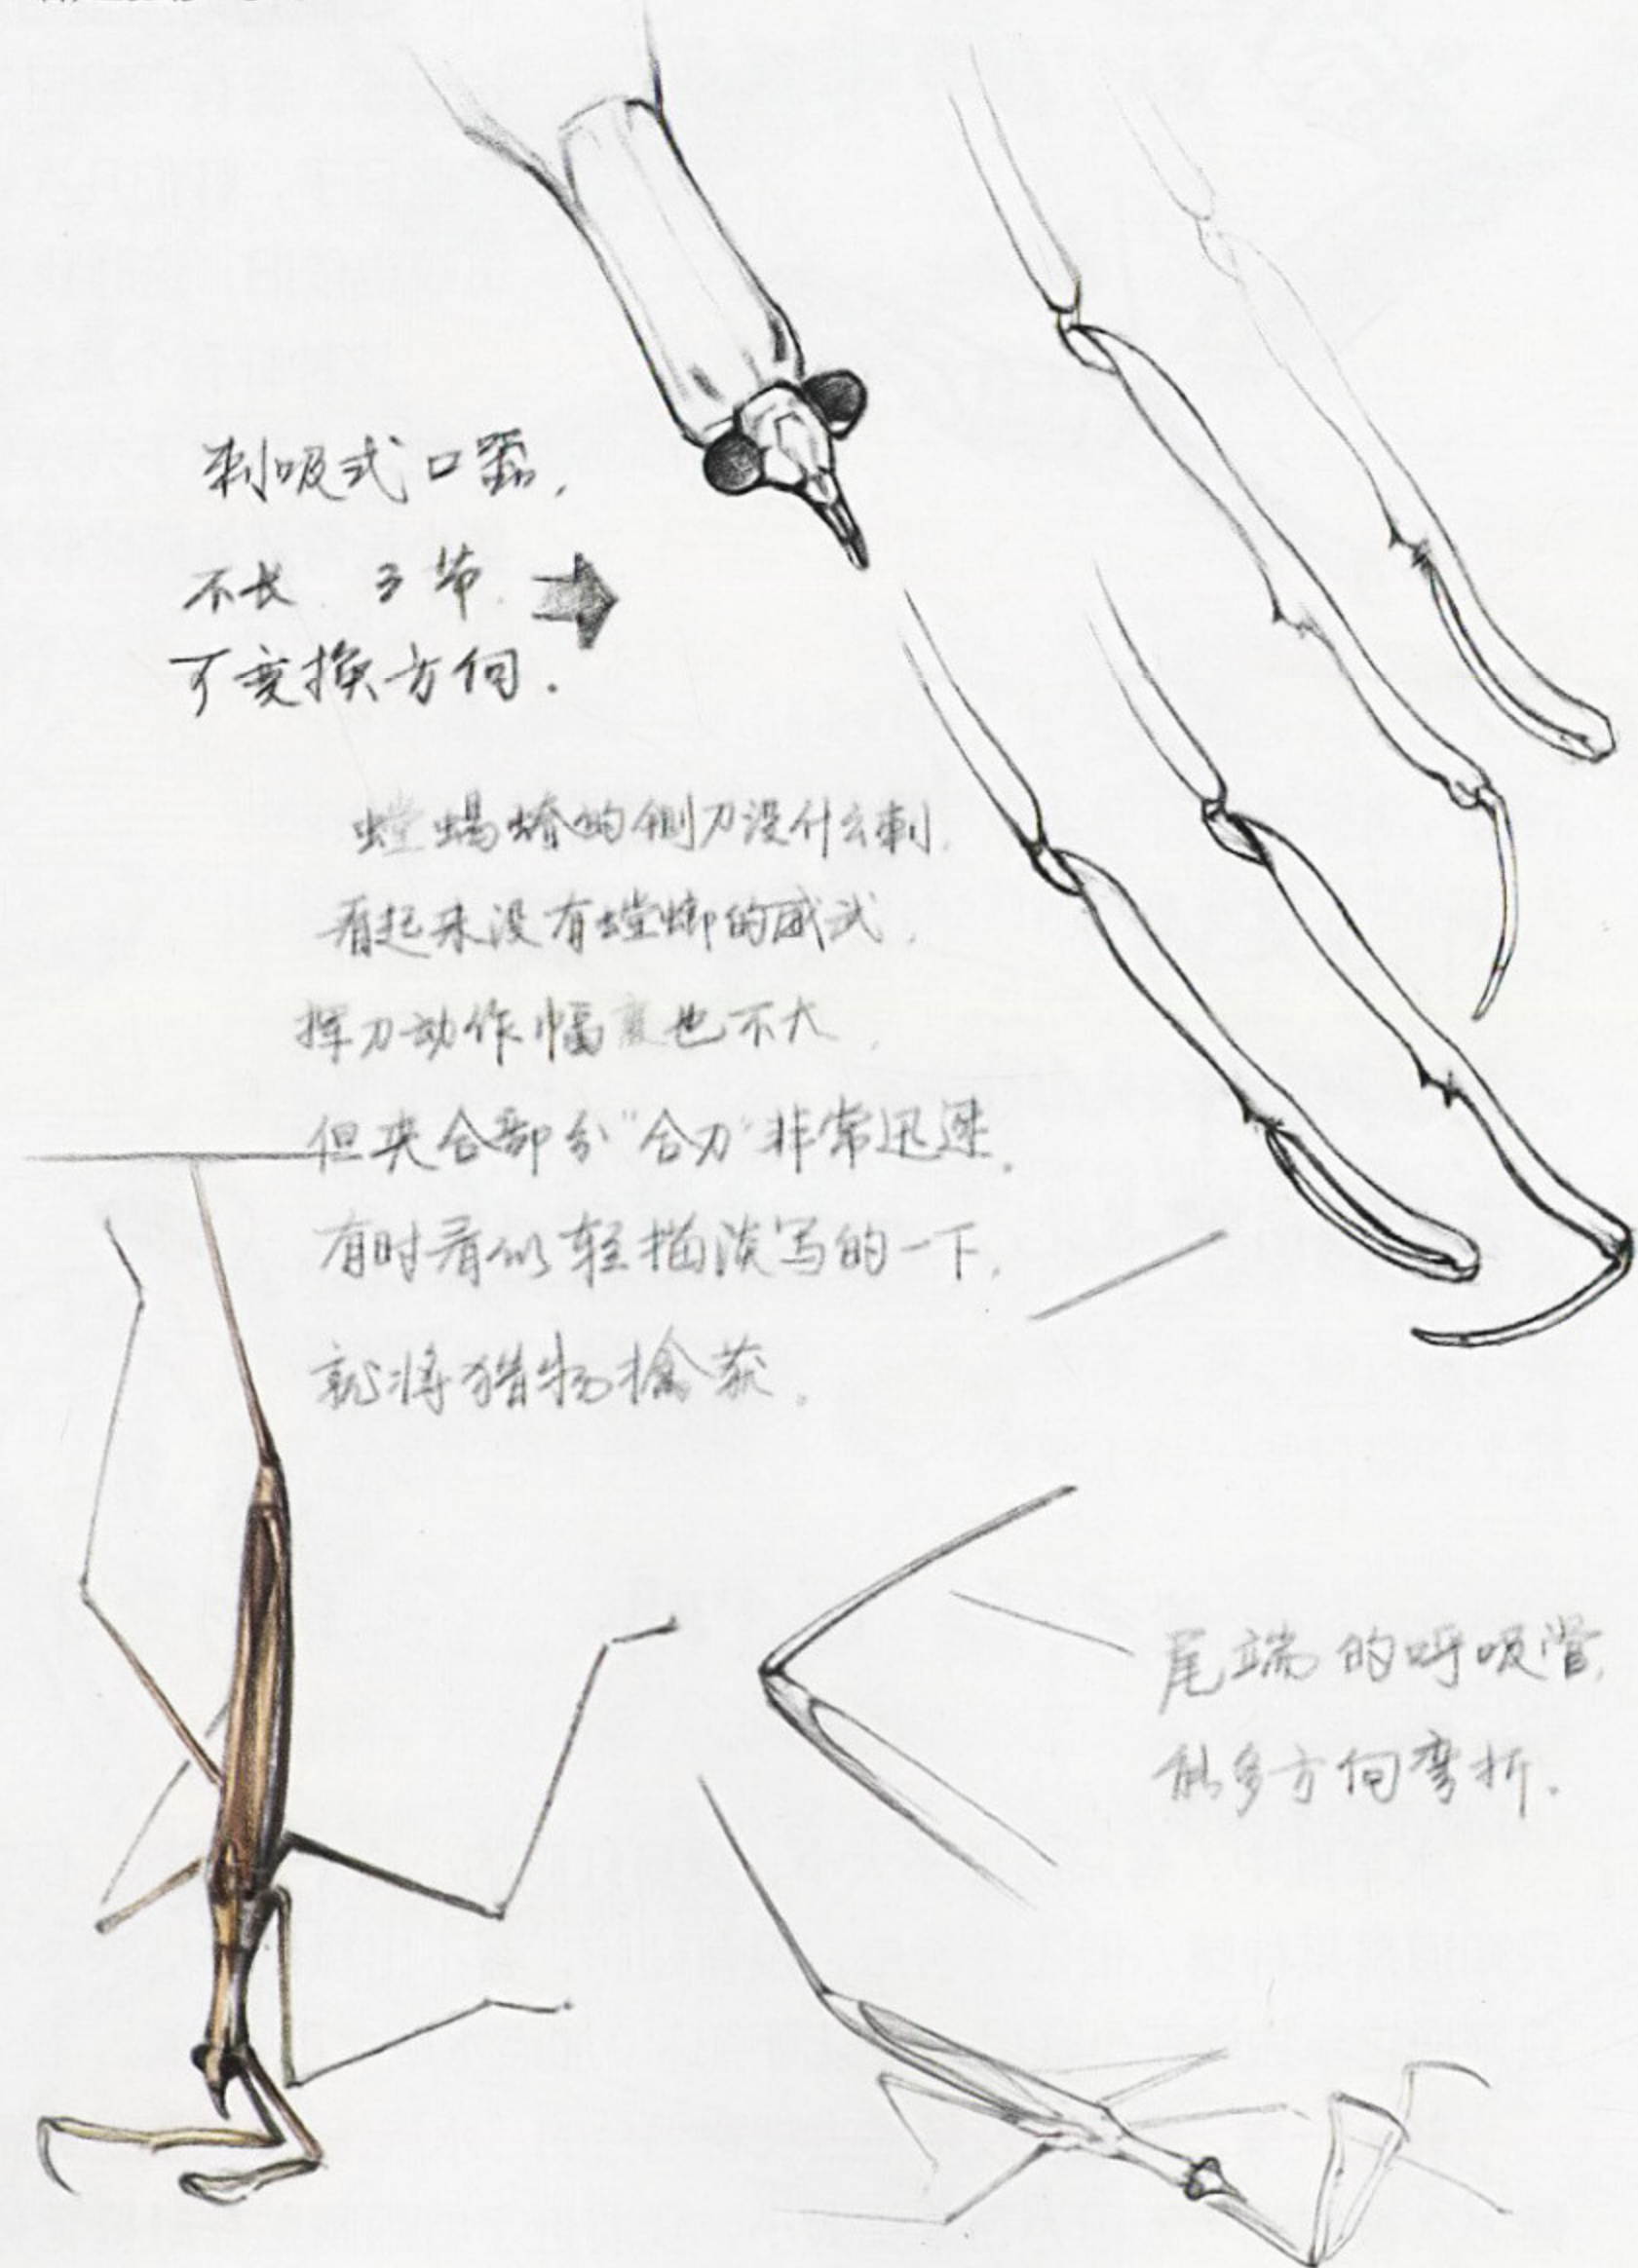 刺吸式口器，
不长，3节，
可变换方向．
螳蝎蝽的铡刀没什么刺，
看起来没有螳螂的威武，
挥刀动作幅度也不大，
但夹合部分“合刀”非常迅速．
有时看似轻描淡写的一下，
就将猎物擒获．
尾端的呼吸管，
能多方向弯折．